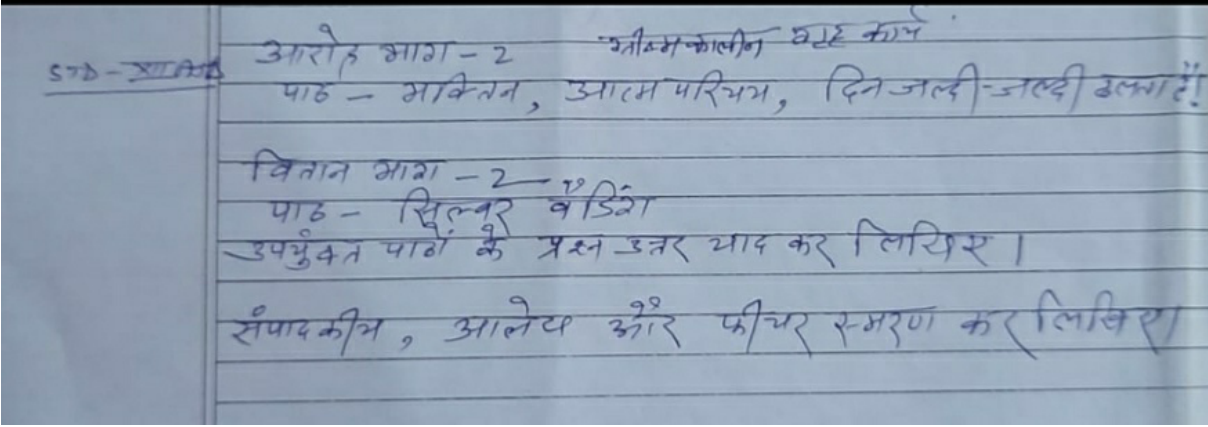 ग्रीष्मकालीन गृह कार्य
STD - XII
आरोह भाग - 2
पाठ - भक्तिन, आत्म परिचय, दिन जल्दी-जल्दी ढलता है!
वितान भाग - 2
पाठ - सिल्वर वैडिंग
उपर्युक्त पाठों के प्रश्न उत्तर याद कर लिखिए।
संपादकीय, आलेख और फीचर स्मरण कर लिखिए।